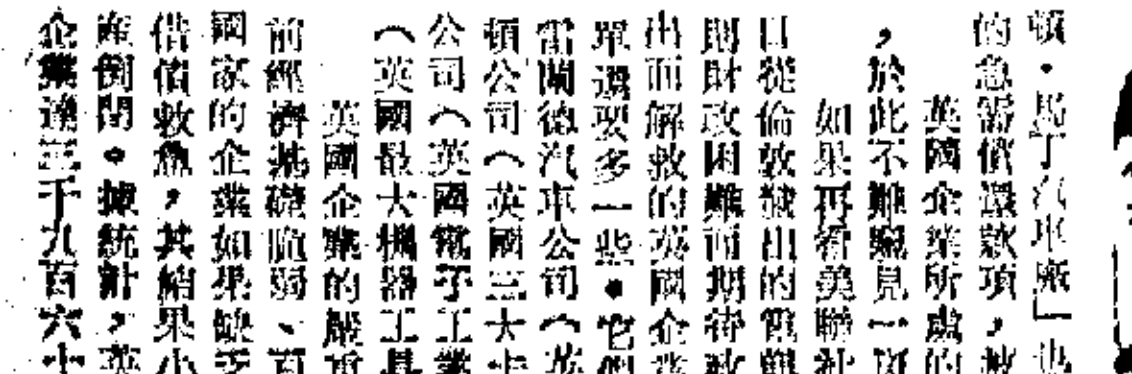 頓·馬丁汽車廠」也
的急需償還款項，被
英國企業所處的
，於此不難窺見一斑
如果再看美聯社
日從倫敦發出的電
則財政困難而期待政
出而解救的英國企業
單還要多一些。它們
雷蘭德汽車公司（英
頓公司（英國三大卡
公司（英國電子工業
（英國最大機器工具
英國企業的嚴重
前經濟基礎脆弱、百
國家的企業如果缺乏
借債救急，其結果小
產倒閉。據統計，英
企業達三千九百六十